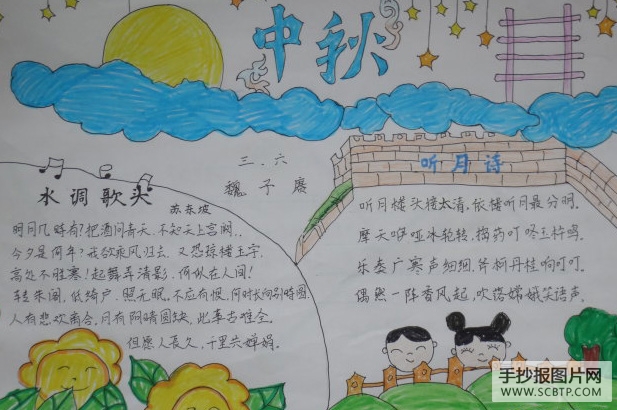 中秋
三.六
魏子
水调歌头
苏东坡
明月几时有?把酒问青天,不知天上宫阙..
今夕是何年?我欲乘风归去,又恐琼楼玉宇.
高处不胜寒!起舞弄清影,何似在人间!
转朱阁,低绮户,照无眠.不应有恨,何时长向别时圆.
人有悲欢离合,月有阴晴圆缺,此事古难全.
但愿人長久,千里共婵娟.
听月诗
听月楼头接太清,依楼听月最分明.
摩天咿哑冰轮转,捣药叮咚玉杵鸣.
乐奏广寒声细细,斧柯丹桂响叮叮.
偶然一阵香风起,吹落嫦娥笑语声.
手抄报图片网
WWW.SCBTP.COM